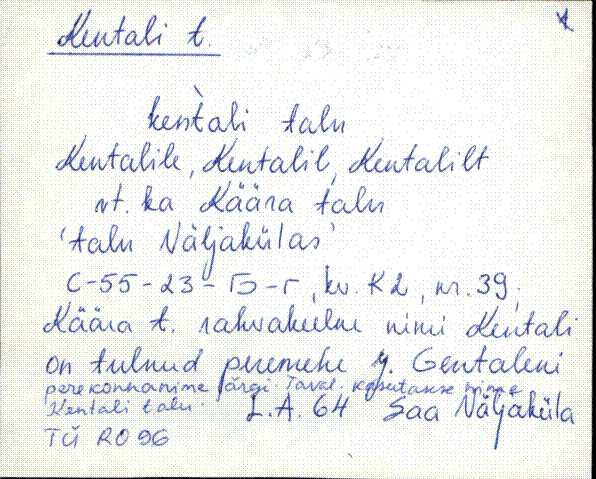 Kentali t.
kentàli talu
Kentalile, Kentalil, Kentalilt
vt. ka Käära talu
'talu Näljakülas'
С-55-23-Б-Г, kv. K2, nr. 39;
Käära t. rahvakeelne nimi Kentali
on tulnud peremehe J. Gentaleni
perekonnanime järgi. Taval. kasutakse nime
Kentali talu.
L.A. 64 Saa Näljaküla
TÜ RO 96